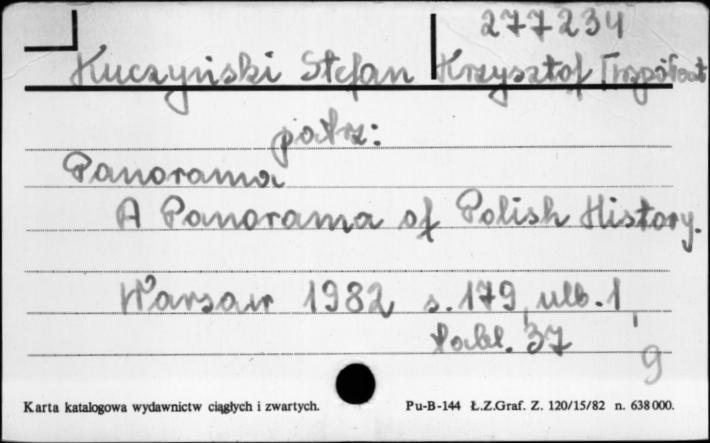 277234
Kuczyński Stefan Krzysztof [współaut
patrz:
Panorama
A Panorama of Polish History.
Warsaw 1982 s. 179, ulb. 1,
tabl. 37
9
Karta katalogowa wydawnictw ciągłych i zwartych. Pu-B-144 Ł.Z.Graf. Z. 120/15/82 n. 638 000.